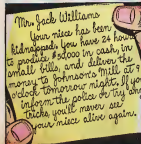 Mr. Jack Williams
Your niece has been
kidnapped. You have 24 hours
to produce $50,000 in cash, in
small bills, and deliver the
money to Johnson's Mill at 9
o'clock tomorrow night. If you
inform the police or try any
tricks, you'll never see
your niece alive again.